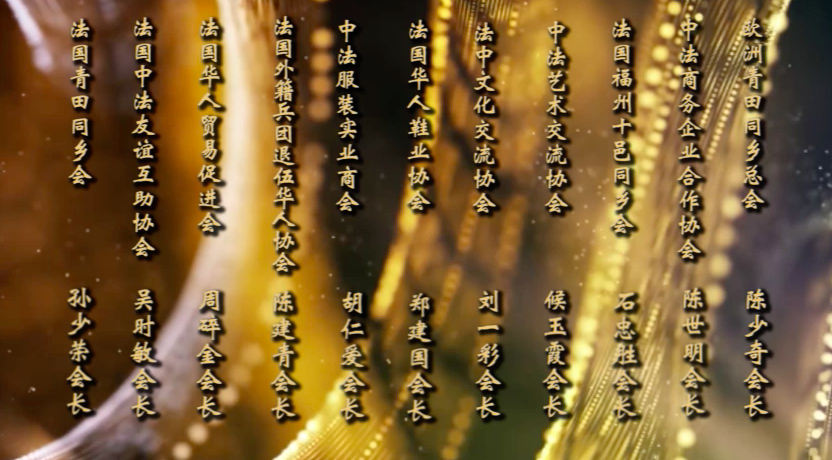 欧洲青田同乡总会
陈少奇会长
中法商务企业合作协会
陈世明会长
法国福州十邑同乡会
石忠胜会长
中法艺术交流协会
候玉霞会长
法中文化交流协会
刘一彩会长
法国华人鞋业协会
郑建国会长
中法服装实业商会
胡仁爱会长
法国外籍兵团退伍华人协会
陈建青会长
法国华人贸易促进会
周碎金会长
法国中法友谊互助协会
吴时敏会长
法国青田同乡会
孙少荣会长